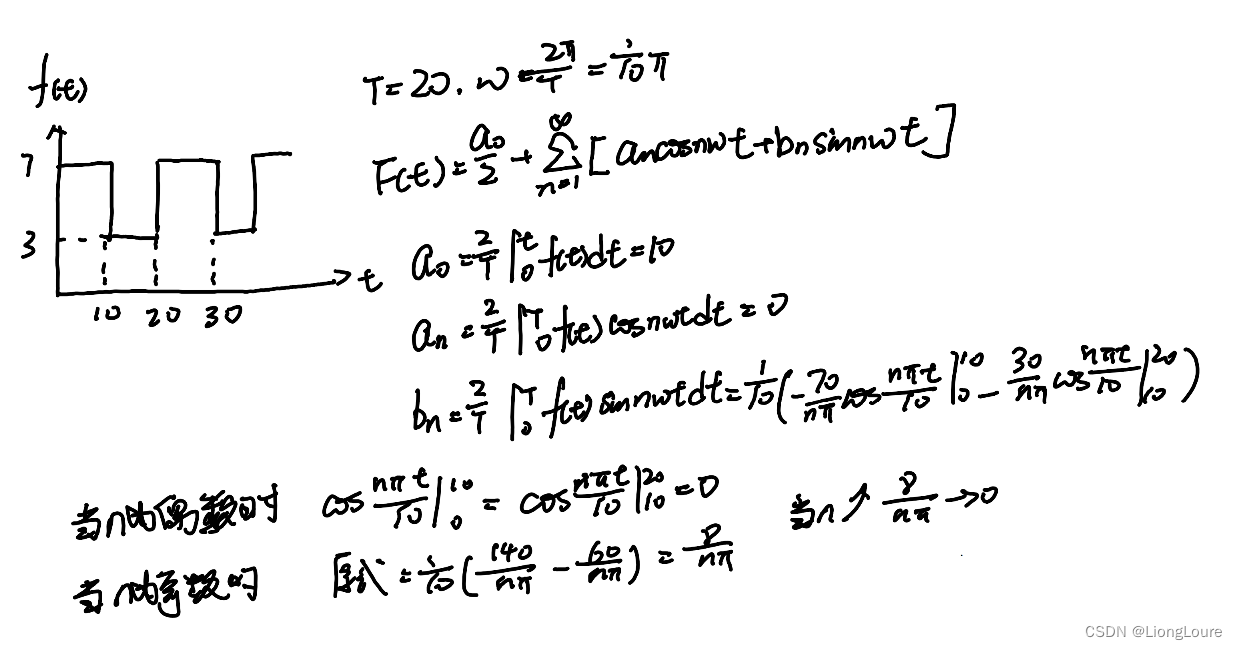 f(t)
7
3
10 20 30
t
T=20. w=2π/T=1/10 π
F(t)=a₀/2+∑_{n=1}^{∞}[aₙcosnwt+bₙsinnwt]
a₀=2/T∫₀ᵗf(t)dt=10
aₙ=2/T∫₀ᵀf(t)cosnwtdt=0
bₙ=2/T∫₀ᵀf(t)sinnwtdt=1/10(-70/nπ cos nπt/10|₀¹⁰-30/nπ cos nπt/10|₁₀²⁰)
当n为偶数时 cos nπt/10|₀¹⁰=cos nπt/10|₁₀²⁰=0 当n↗ 8/nπ→0
当n为奇数时 原式=1/10(140/nπ-60/nπ)=8/nπ
CSDN @LiongLoure